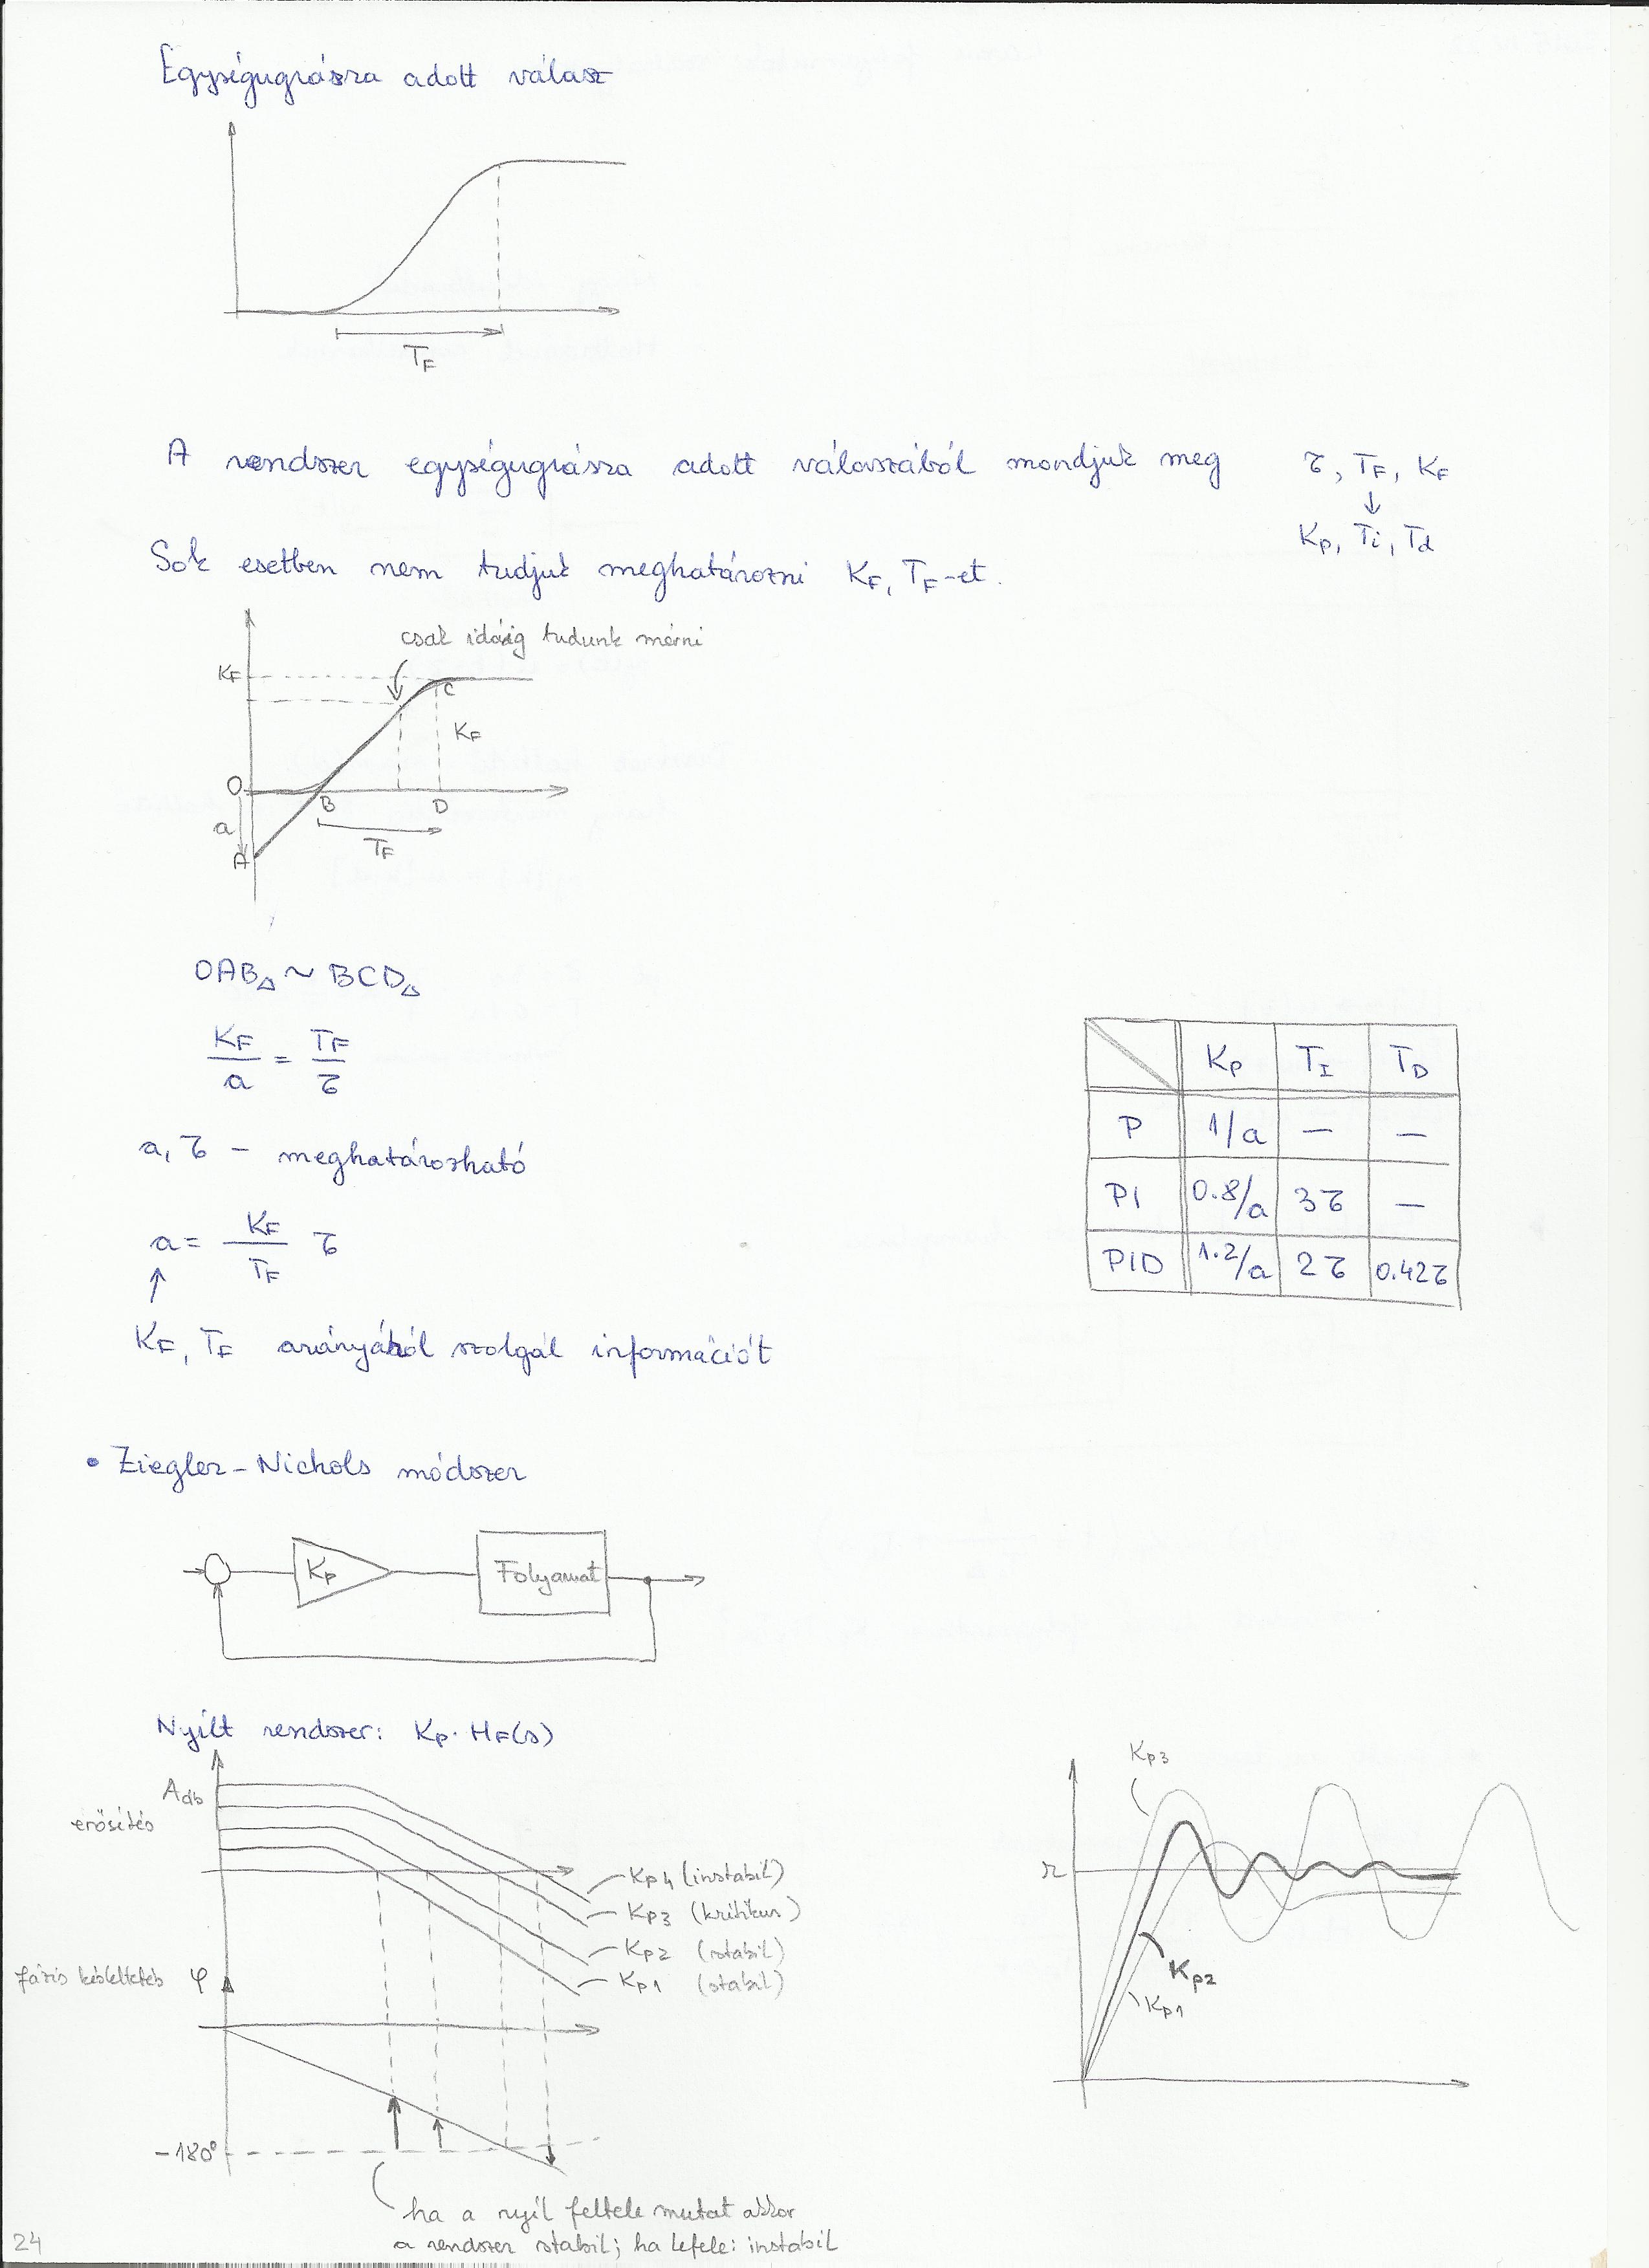 Egységugrásra adott válasz
T_F
A rendszer egységugrásra adott válaszából mondjuk meg τ, T_F, K_F
↓
K_p, T_i, T_d
Sok esetben nem tudjuk meghatározni K_F, T_F-et.
csak idáig tudunk mérni
K_F
C
K_F
O
B D
a
T_F
A
OAB△ ~ BCD△
K_F/a = T_F/τ
a, τ - meghatározható
a = K_F/T_F τ
↑
K_F, T_F arányából szolgál információt
K_P T_I T_D
P 1/a — —
PI 0.8/a 3τ —
PID 1.2/a 2τ 0.42τ
• Ziegler-Nichols módszer
K_P Folyamat
Nyílt rendszer: K_P · H_F(s)
A_db
erősítés
K_p4 (instabil)
K_p3 (kritikus)
K_p2 (stabil)
K_p1 (stabil)
fázis késleltetés φ
-180°
ha a nyíl feltele mutat akkor
a rendszer stabil; ha lefele: instabil
K_p3
r
K_p2
K_p1
24